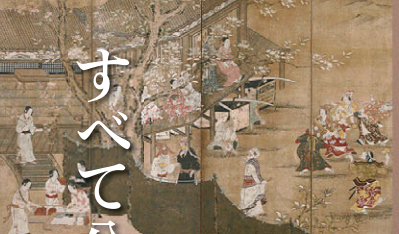 すべて